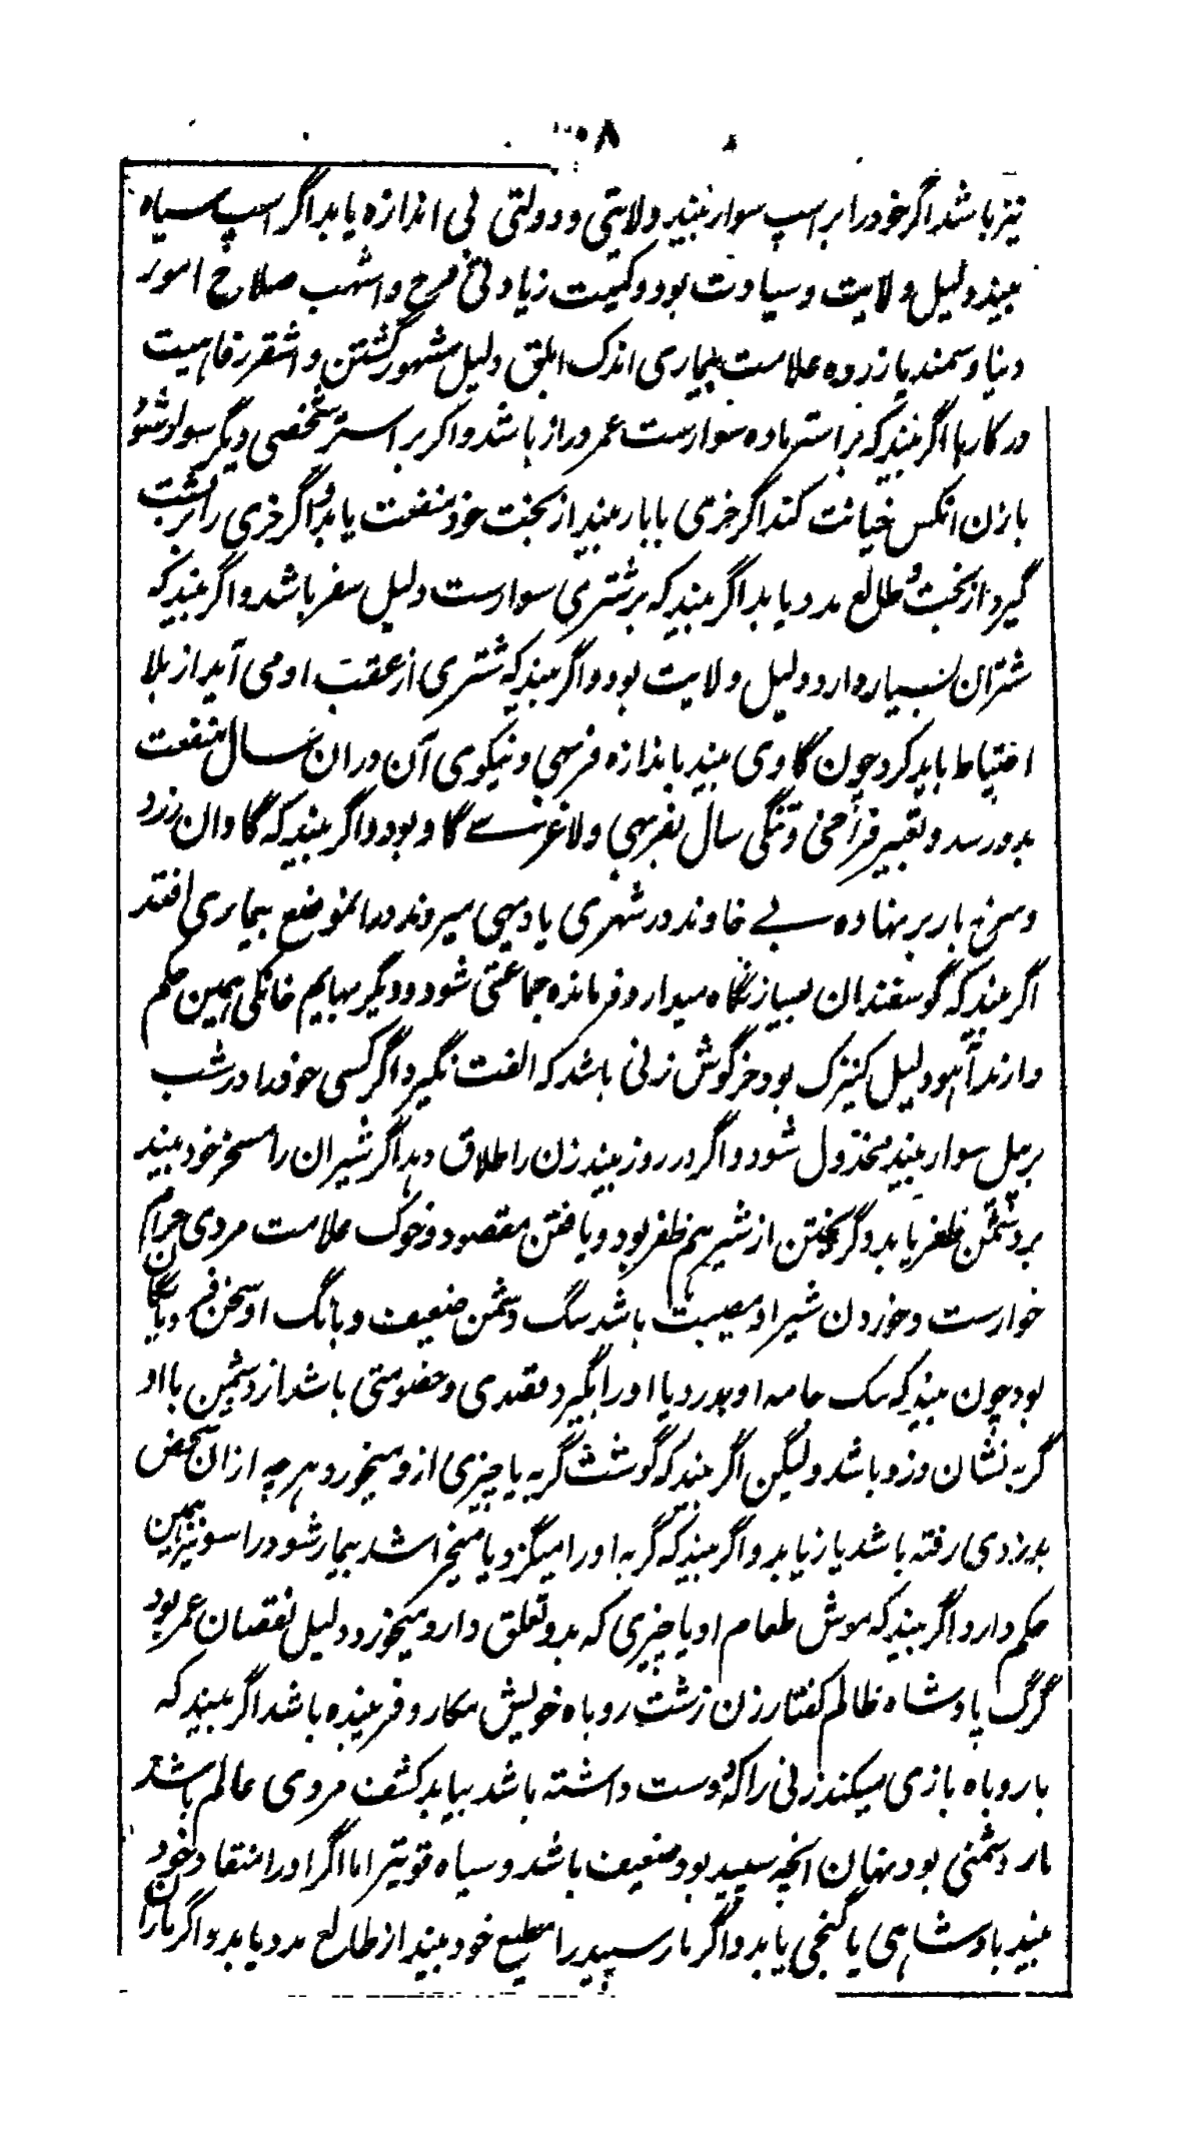 نیز باشد اگر خود را بر اسپ سوار بیند ولایتی و دولتی بی اندازه یابد اگر اسپ سیاه
بیند دلیل ولایت و سیادت بود و کمیت زیادتی فرح و اشهب صلاح امور
دنیا و سمند یا زرده علامت بیماری اندک ابلق دلیل مشهور گشتن و اشقر رفاهیت
در کارها اگر بیند که بر استر ماده سوارست عمر دراز باشد و اکر بر استر شخصی دیگر سوار شود
با زن انکس خیانت کند اگر خری با بار بیند از بخت خود منفعت یابد و اگر خری را بر پشت
گیرد از بخت و طالع مدد یابد اگر بیند که بر شتری سوارست دلیل سفر باشد و اگر بیند که
شتران بسیار دارد دلیل ولایت بود و اگر بیند که شتری از عقب او می آید از بلا
احتیاط باید کرد چون گاوی بیند باندازه فربهی و نیکوی آن در ان سال منفعت
بدو رسد و تعبیر فراخی و تنگی سال بفربهی و لاغری گاو بود و اگر بیند که گاوان زرد
و سرخ بار بر نهاده بی خاوند در شهری یا دیهی میروند در انموضع بیماری افتد
اگر بیند که گوسفندان بسیار نگاه میدارد فرمانده جماعتی شود و دیگر بهایم خانگی همین حکم
دارند آهو دلیل کنیزک بود خرگوش زنی باشد که الفت نگیرد اگر کسی خود را در شب
بر پیل سوار بیند مخذول شود و اگر در روز بیند زن را طلاق دهد اگر شیران را مسخر خود بیند
بر دشمن ظفر یابد و گریختن از شیر هم ظفر بود و یافتن مقصود و خوک علامت مردی حرام
خوارست و خوردن شیر او مصیبت باشد سگ دشمن ضعیف و بانگ او سخن
بود چون بیند که سک جامه او بدرد یا او را بگیرد قصدی و خصومتی باشد از دشمن با او
گربه نشان دزد باشد ولیکن اگر بیند که گوشت گربه یا چیزی ازو میخورد هرچه ازان شخص
بدزدی رفته باشد باز یابد و اگر بیند که گربه او را میگزد یا میخراشد بیمار شود راسو نیز همین
حکم دارد اگر بیند که موش طعام او یا چیزی که بدو تعلق دارد میخورد دلیل نقصان عمر بود
گرگ پادشاه ظالم کفتار زن زشت روباه خویش مکار و فریبنده باشد اگر بیند که
با روباه بازی میکند زنی را که دوست داشته باشد بیابد کشف مردی عالم باشد
مار دشمنی بود پنهان انچه سپید بود ضعیف باشد و سیاه قویتر اما اگر او را منقاد خود
بیند پادشاهی یا گنجی یابد و اگر مار سپید را مطیع خود بیند از طالع مدد یابد و اگر ماران